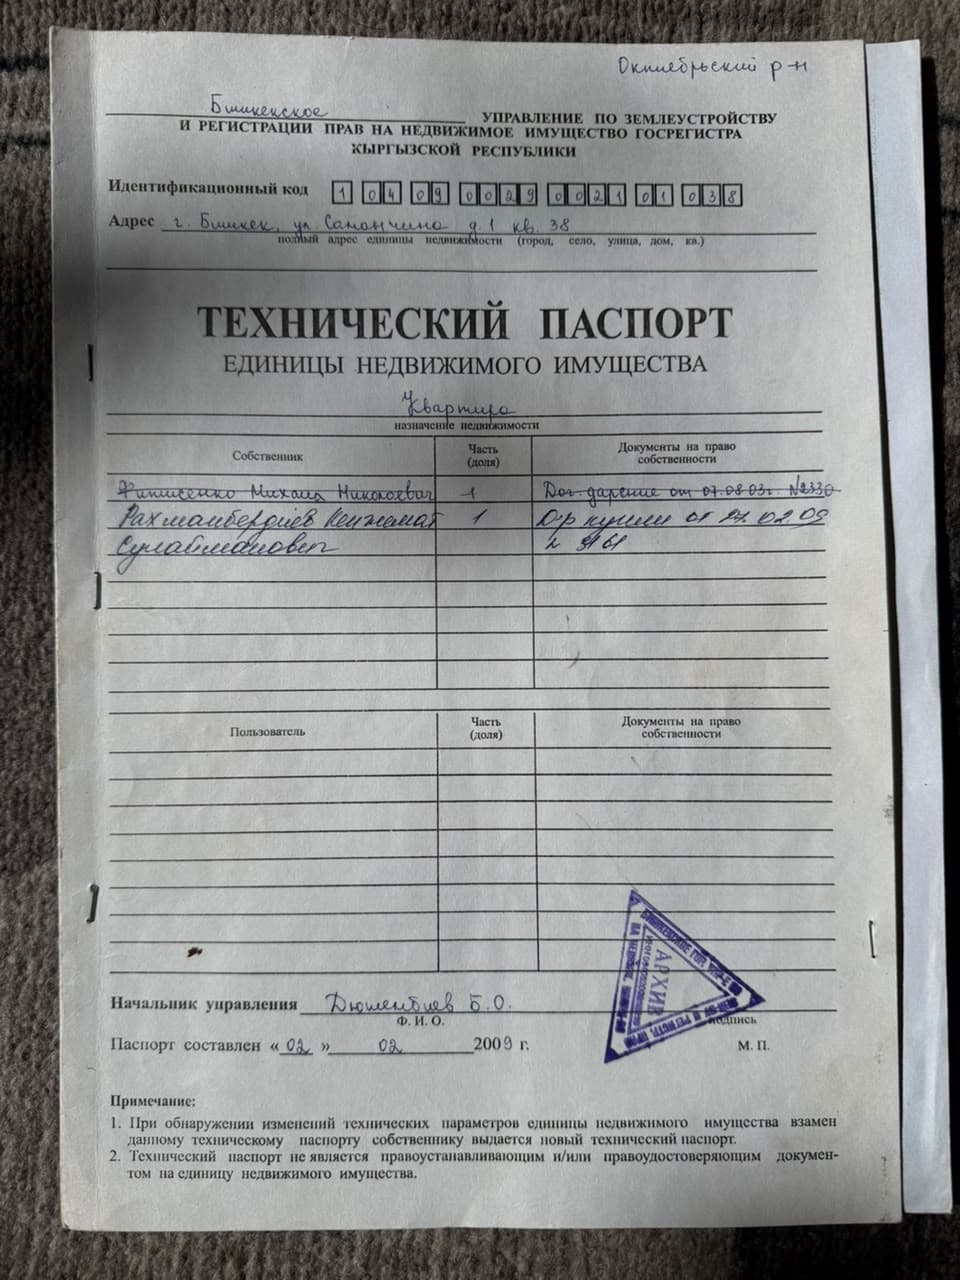 Октябрьский р-н
Бишкекское УПРАВЛЕНИЕ ПО ЗЕМЛЕУСТРОЙСТВУ
И РЕГИСТРАЦИИ ПРАВ НА НЕДВИЖИМОЕ ИМУЩЕСТВО ГОСРЕГИСТРА
КЫРГЫЗСКОЙ РЕСПУБЛИКИ
Идентификационный код 1 04 09 0029 0021 01 038
Адрес г. Бишкек, ул. д. 1 кв. 38
полный адрес единицы недвижимости (город, село, улица, дом, кв.)
ТЕХНИЧЕСКИЙ ПАСПОРТ
ЕДИНИЦЫ НЕДВИЖИМОГО ИМУЩЕСТВА
Квартира
назначение недвижимости
Собственник Часть (доля) Документы на право собственности
Михаил Николаевич 1 Дог. дарение от 07.08.03г. №2330
Рахманбердиев 1 Д-р купли от 27.02.09
Сулайманович
Пользователь Часть (доля) Документы на право собственности
Начальник управления Б.О.
Ф. И. О. подпись
Паспорт составлен « 02 » 02 2009 г. М. П.
АРХИВ
Примечание:
1. При обнаружении изменений технических параметров единицы недвижимого имущества взамен
данному техническому паспорту собственнику выдается новый технический паспорт.
2. Технический паспорт не является правоустанавливающим и/или правоудостоверяющим докумен-
том на единицу недвижимого имущества.